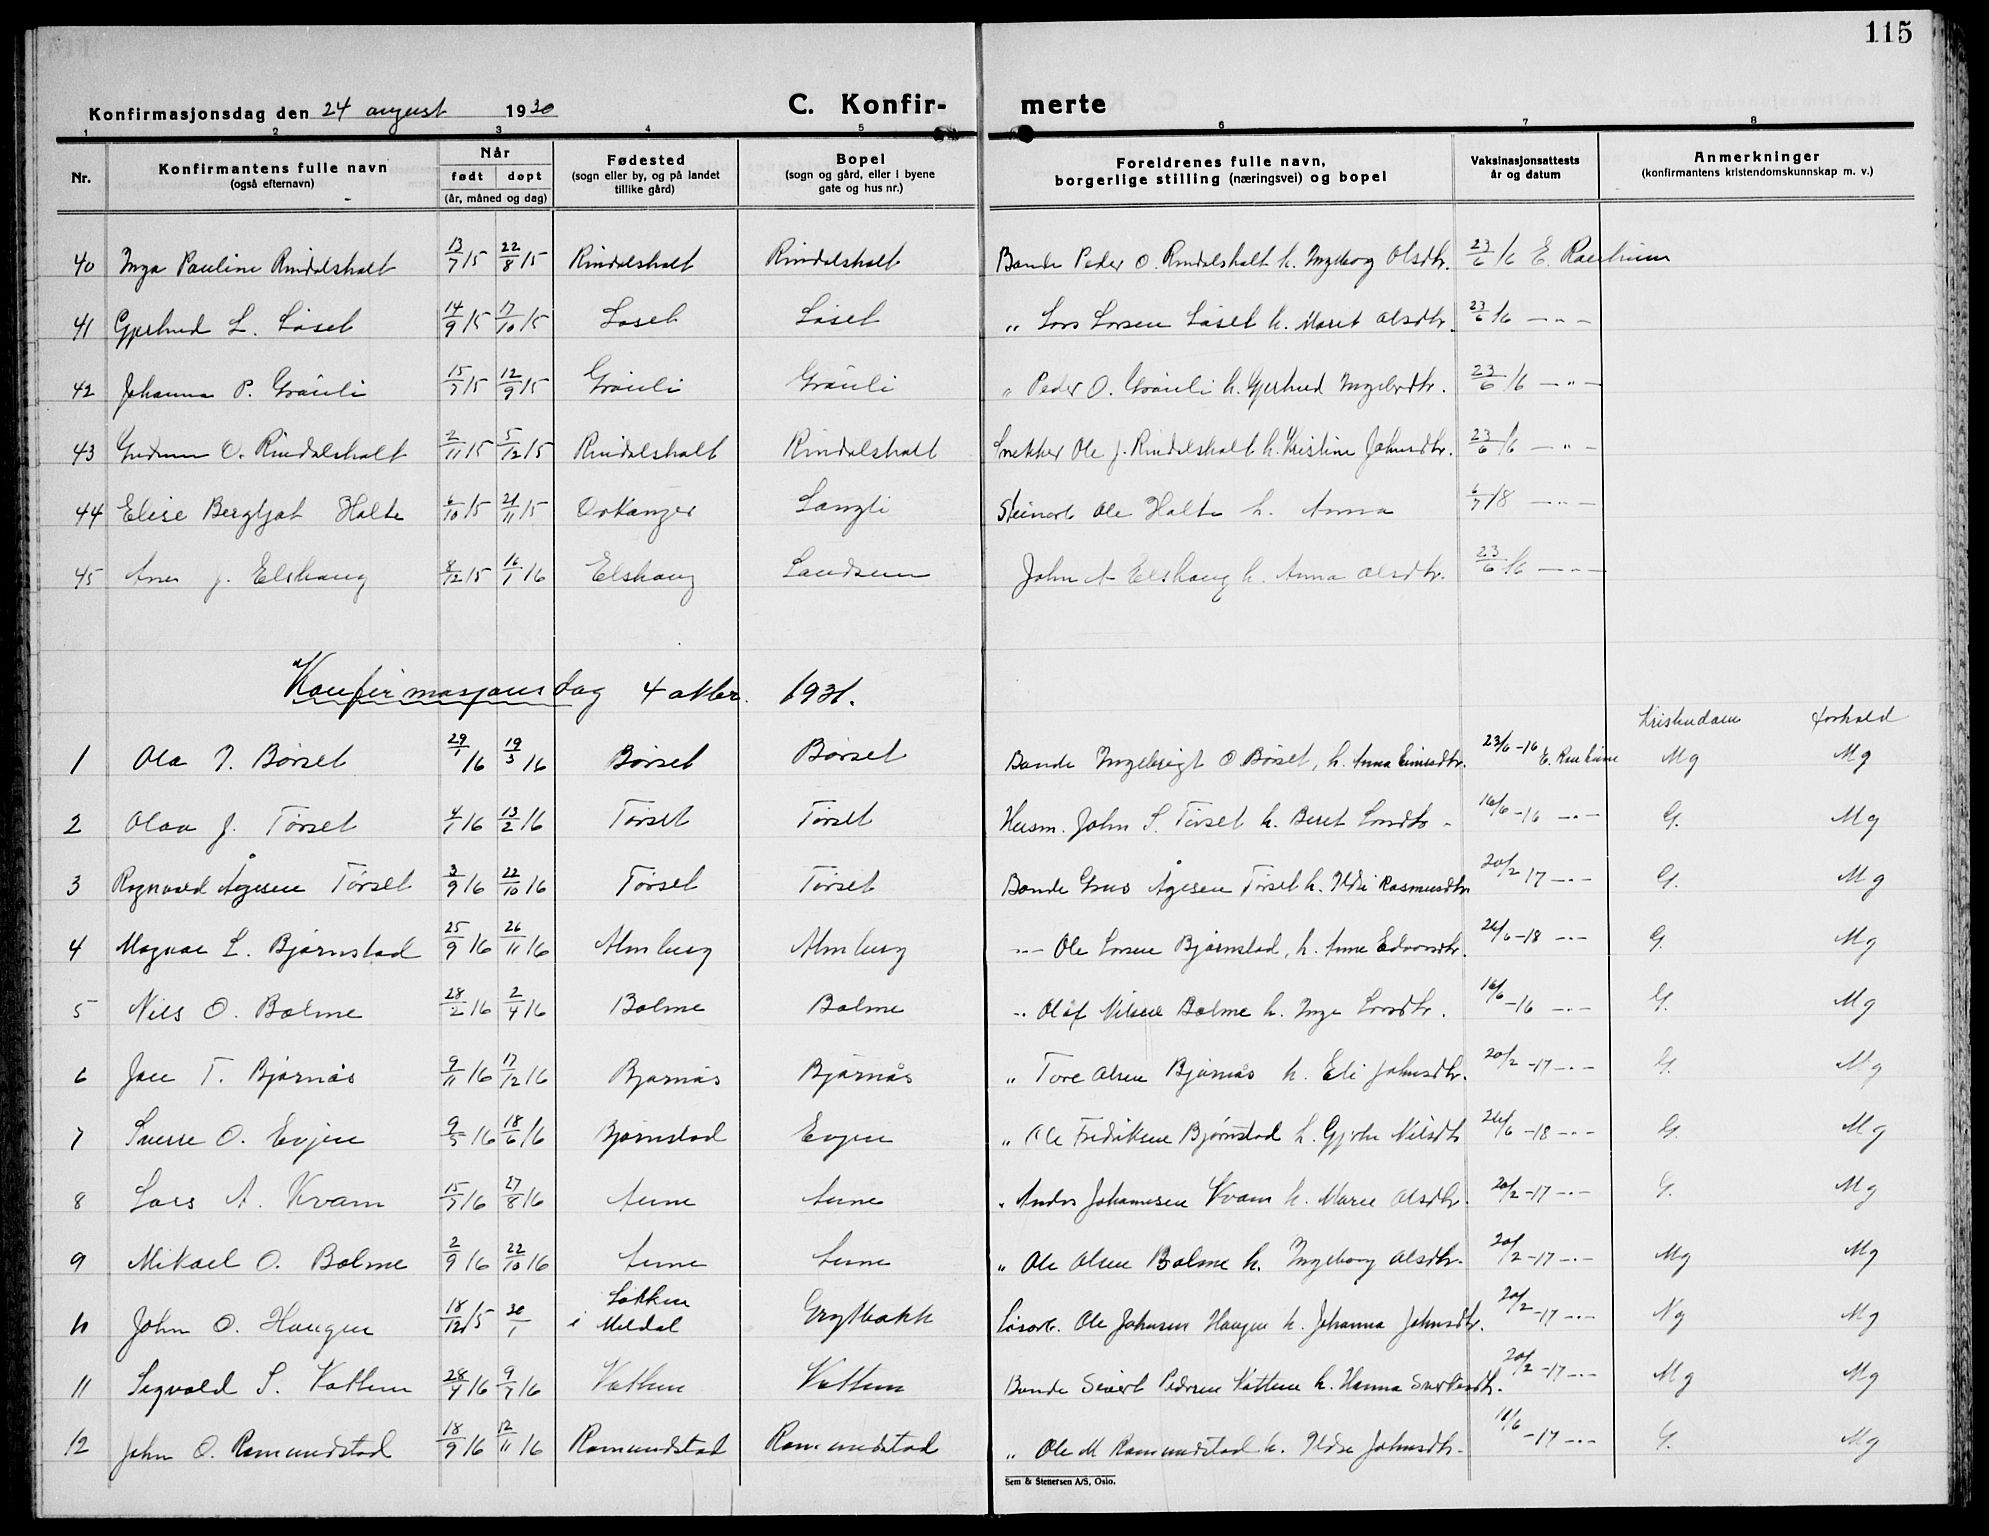 115
Konfirmasjonsdag den 24 august 1930 C. Konfir- merte
1 2 3 4 5 6 7 8
Nr. Konfirmantens fulle navn (også efternavn) Når født døpt (år, måned og dag) Fødested (sogn eller by, og på landet tillike gård) Bopel (sogn og gård, eller i byene gate og hus nr.) Foreldrenes fulle navn, borgerlige stilling (næringsvei) og bopel Vaksinasjonsattests år og datum Anmerkninger (konfirmantens kristendomskunnskap m. v.)
40 Inga Pauline Rindalsholt 13/7 15 22/8 15 Rindalsholt Rindalsholt Bonde Peder O. Rindalsholt h. Ingeborg Olsdtr. 23/6 16 E.
41 Gjertrud L. Løset 14/9 15 17/10 15 Løset Løset " Lars Larsen Løset h. Marit Olsdtr. 23/6 16 — " —
42 Johanna P. Grönli 15/7 15 12/9 15 Grönli Grönli " Peder O. Grönli h. Gjertrud Ingebrdtr. 23/6 16 — " —
43 Gudrun O. Rindalsholt 2/11 15 5/12 15 Rindalsholt Rindalsholt Snekker Ole J. Rindalsholt h. Kristine Johnsdtr. 23/6 16 — " —
44 Elise Bergljot Holte 6/10 15 21/11 15 Orkanger Langli Ole Holte h. Anna 6/7 18 — " —
45 Anne J. Elshaug 8/12 15 16/1 16 Elshaug Landsem John A Elshaug h. Anna Olsdtr. 23/6 16 — " —
Konfirmasjonsdag 4 oktbr. 1931.
Kristendom Forhold
1 Ola I. Børset 29/1 16 19/3 16 Børset Børset Bonde Ingebrigt O. Børset, h. Anna 23/6-16 E. Mg Mg
2 Olav J. Tørset 4/1 16 13/2 16 Tørset Tørset Husm. John S. Tørset h. Beret Larsdtr - 16/6-16 — " — G. Mg
3 Rognvald Ågesen Tørset 3/9 16 22/10 16 Tørset Tørset Bonde Ågesen Tørset h. Ildri Rasmusdtr 20/2 17 — " — G. Mg
4 Magnar L. Bjørnstad 25/9 16 26/11 16 Almberg Almberg — " — Ole Larsen Bjørnstad, h. Anne Edvardsdtr. 26/6-18 — " — G. Mg
5 Nils O. Bolme 28/2 16 2/4 16 Bolme Bolme " Olaf Nilsen Bolme h. Inga Larsdtr. 16/6-16 — " — G. Mg
6 Jon T. Bjørnås 9/11 16 17/12 16 Bjørnås Bjørnås " Tore Olsen Bjørnås h. Eli Johnsdtr. 20/2-17 — " — G. Mg
7 Sverre O. Evjen 9/5 16 18/6 16 Bjørnstad Evjen " Ole Fredriksen Bjørnstad h. Nilsdtr 26/6-18 — " — G. Mg
8 Lars A. Kvam 15/7 16 27/8 16 Aune Aune " Anders Johannesen Kvam h. Marie Olsdtr. 20/2-17 — " — G. Mg
9 Mikael O. Bolme 2/9 16 22/10 16 Aune Aune " Ole Olsen Bolme h. Ingeborg Olsdtr. 20/2-17 — " — Mg Mg
John O. Haugen 18/12 15 30/1 Løkken i Meldal Grytbakk Løsarb. Ole Johnsen Haugen h. Johanna Johnsdtr. 20/2-17 — " — Ng Mg
11 Sigvald S. Vattem 28/4 16 9/7 16 Vattem Vattem Bonde Sivert Pedersen Vattem h. Hanna 20/2-17 — " — Mg Mg
12 John O. Romundstad 18/9 16 12/11 16 Romundstad Romundstad " Ole M Romundstad h. Ildri Johnsdtr. 16/6-17 — " — G. Mg
Sem & Stenersen A/S, Oslo.